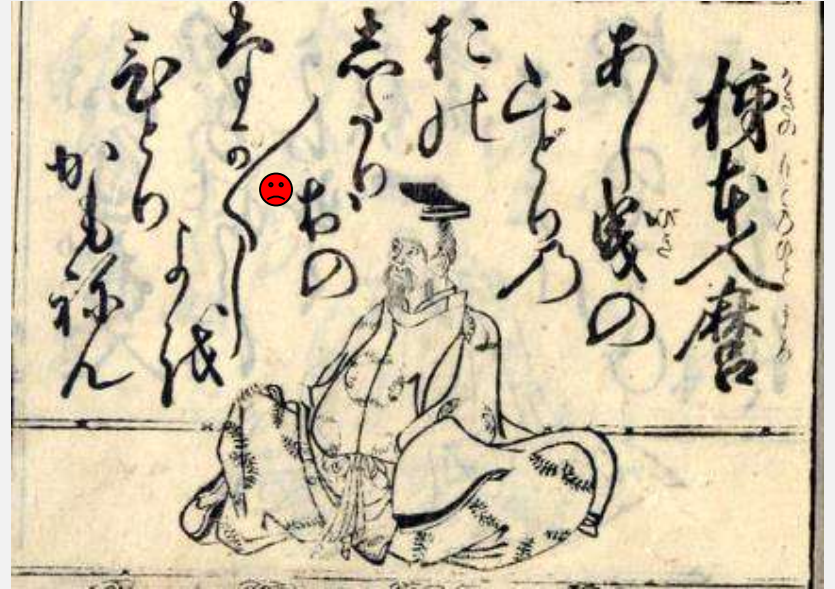 柿本人麿
かきのもとのひとまろ
あし曳の
びき
山どり乃
おの
しだり
おの
なが〱し
よを
ひとり
かもねん